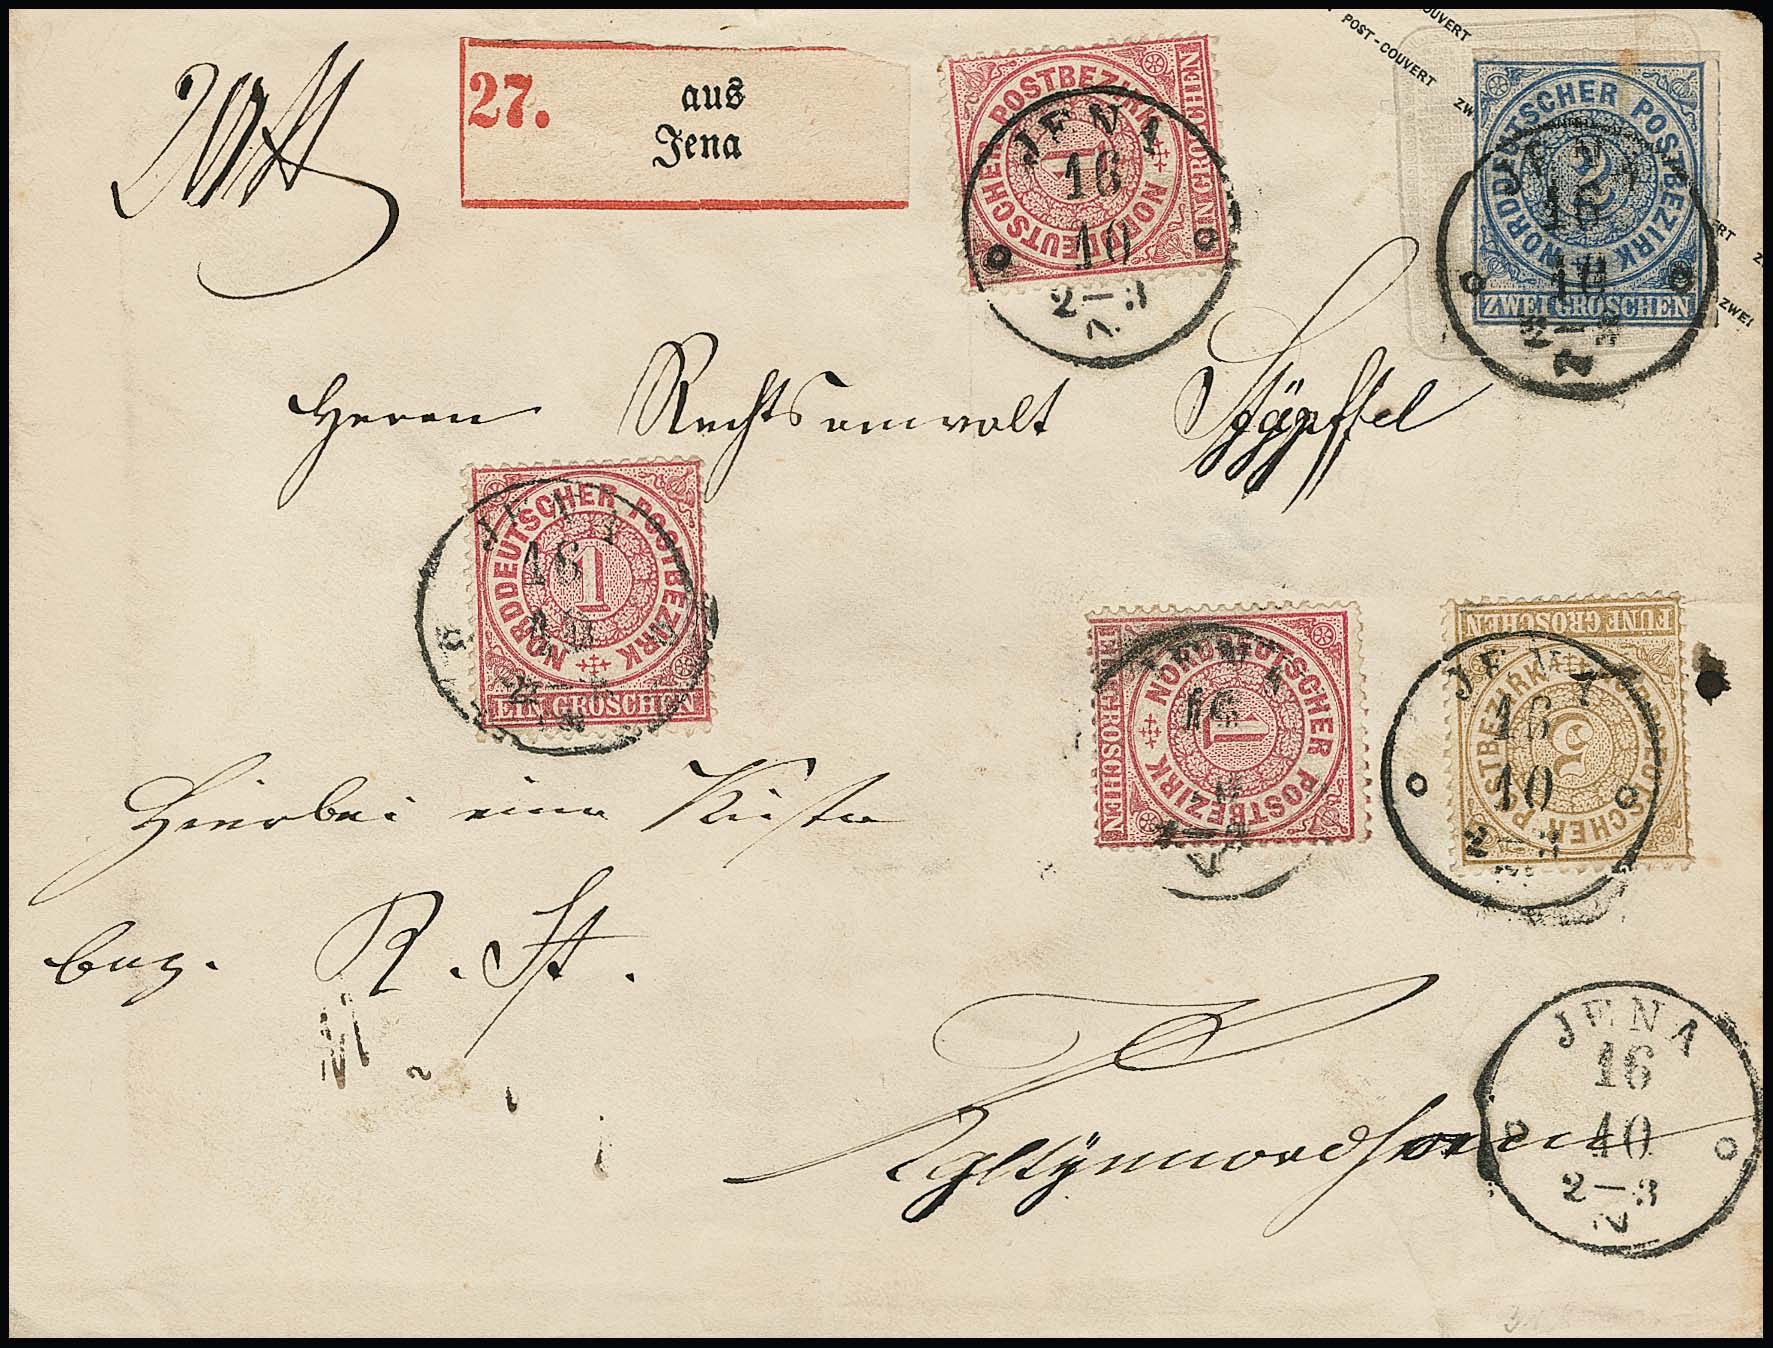 OUVERT
POST-COUVERT
ZW
27. aus
Jena
NORDDEUTSCHER POSTBEZIRK
1
EIN GROSCHEN
JENA
16
10
2-3
N
NORDDEUTSCHER POSTBEZIRK
2
ZWEI GROSCHEN
JENA
16
10
2-3
N
ERT
ZWEI
Herrn Rechtsanwalt
NORDDEUTSCHER POSTBEZIRK
1
EIN GROSCHEN
JENA
16
10
NORDDEUTSCHER POSTBEZIRK
1
EIN GROSCHEN
16
N
FÜNF GROSCHEN
NORDDEUTSCHER POSTBEZIRK
5
JENA
16
10
2-3
Hierbei eine Kiste
R. St.
JENA
16
10
2-3
N